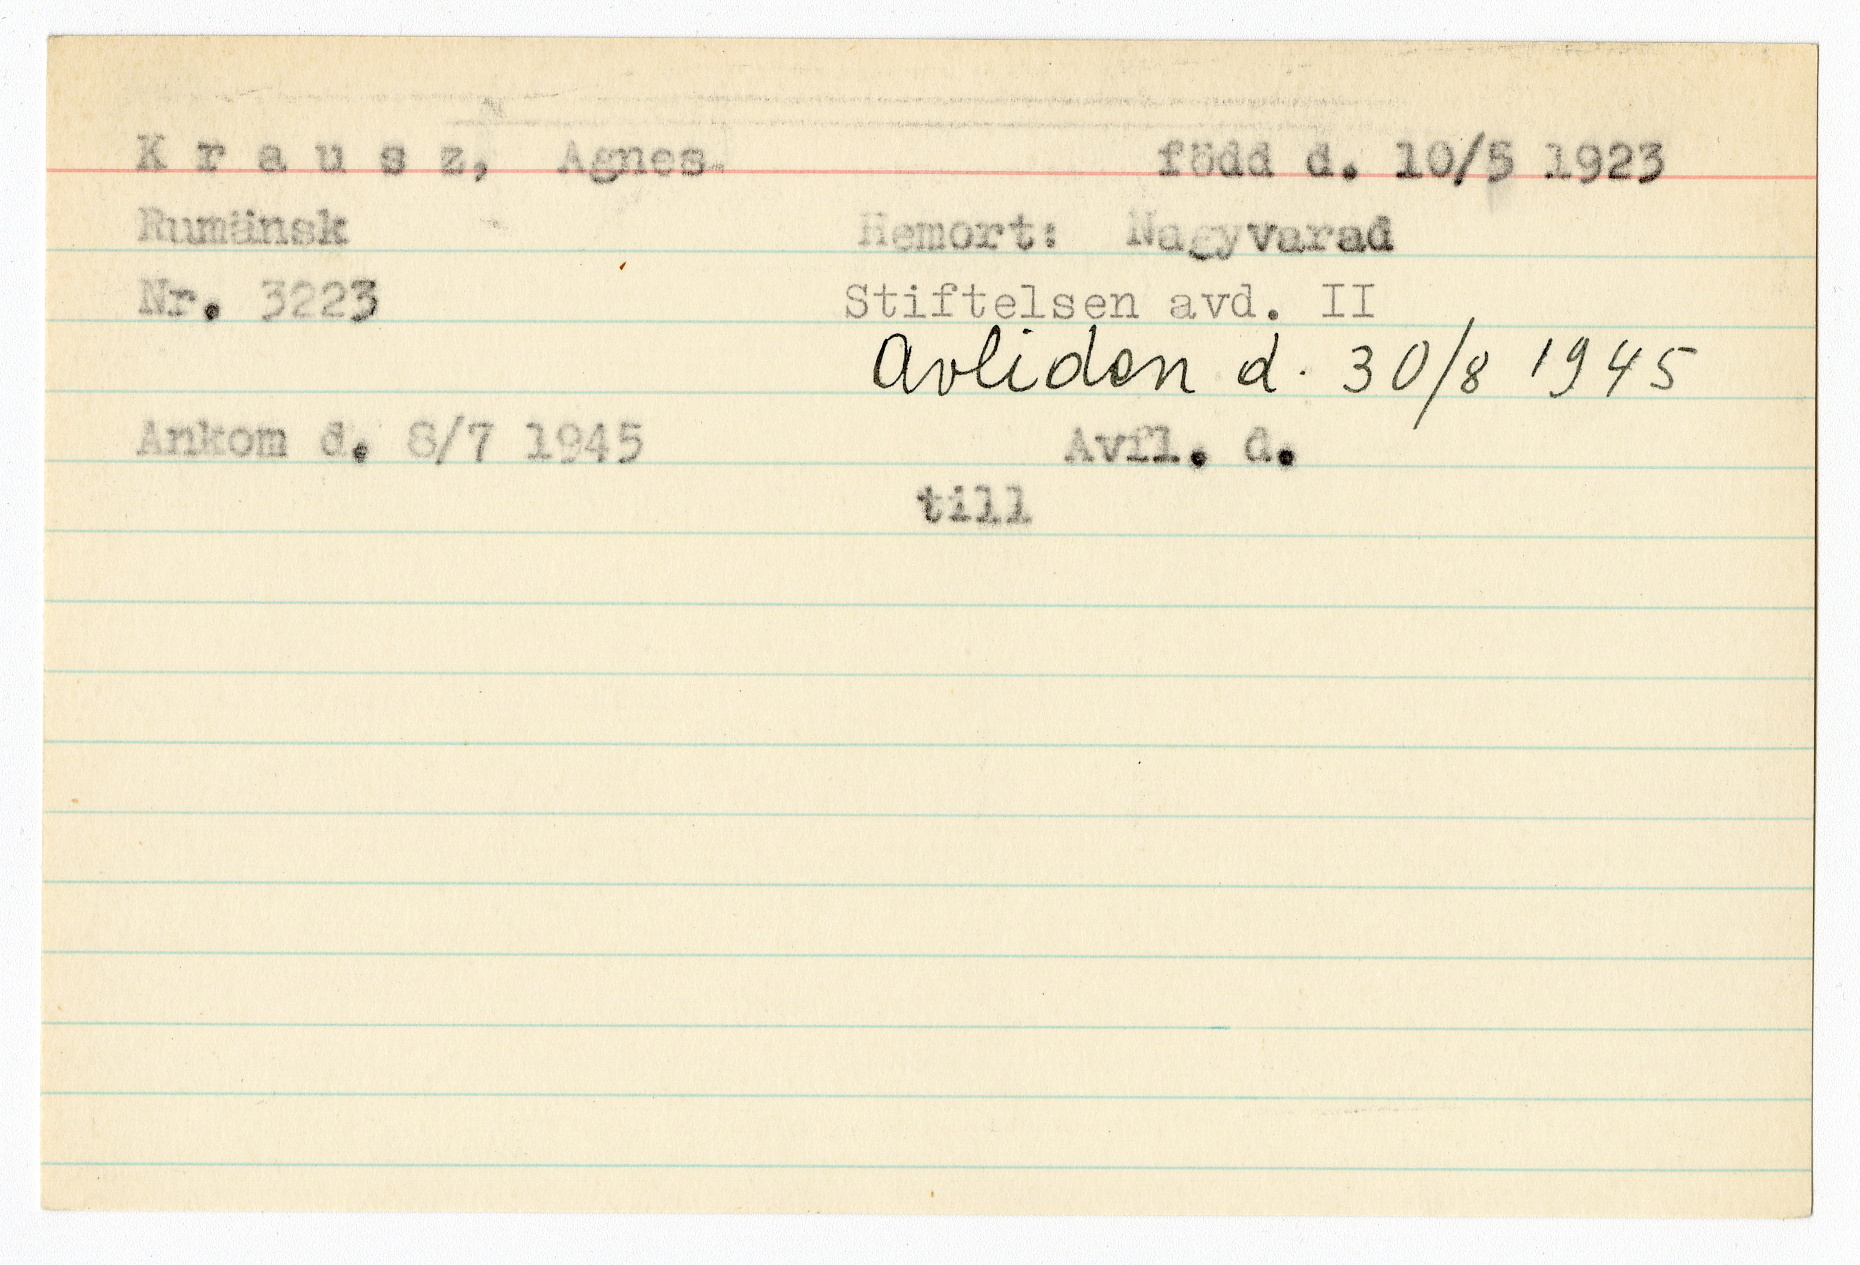 K r a u s z, Agnes. född d. 10/5 1923
Rumänsk Hemort: Nagyvarad
Nr. 3223 Stiftelsen avd. II
Avliden d. 30/8 1945
Ankom d. 8/7 1945 Avfl. d.
till